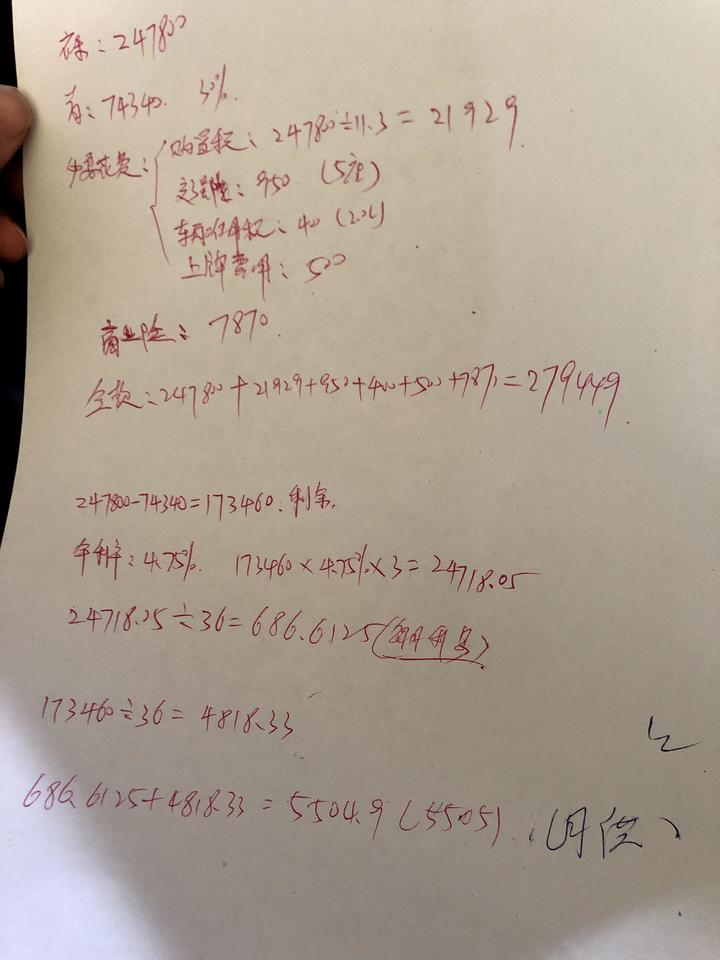 裸：247800
首：74340. 30%.
必要花费：
购置税：24780÷11.3=21929
交强险：950（5座）
车船使用税：400（2.0L）
上牌费用：500
商业险：7870.
全款：247800+21929+950+400+500+7870=279449
247800-74340=173460：剩余.
年利率：4.75%. 173460×4.75%×3=24718.05
24718.05÷36=686.6125（每月利息）
173460÷36=4818.33
686.6125+4818.33=5504.9（5505）.（月供）